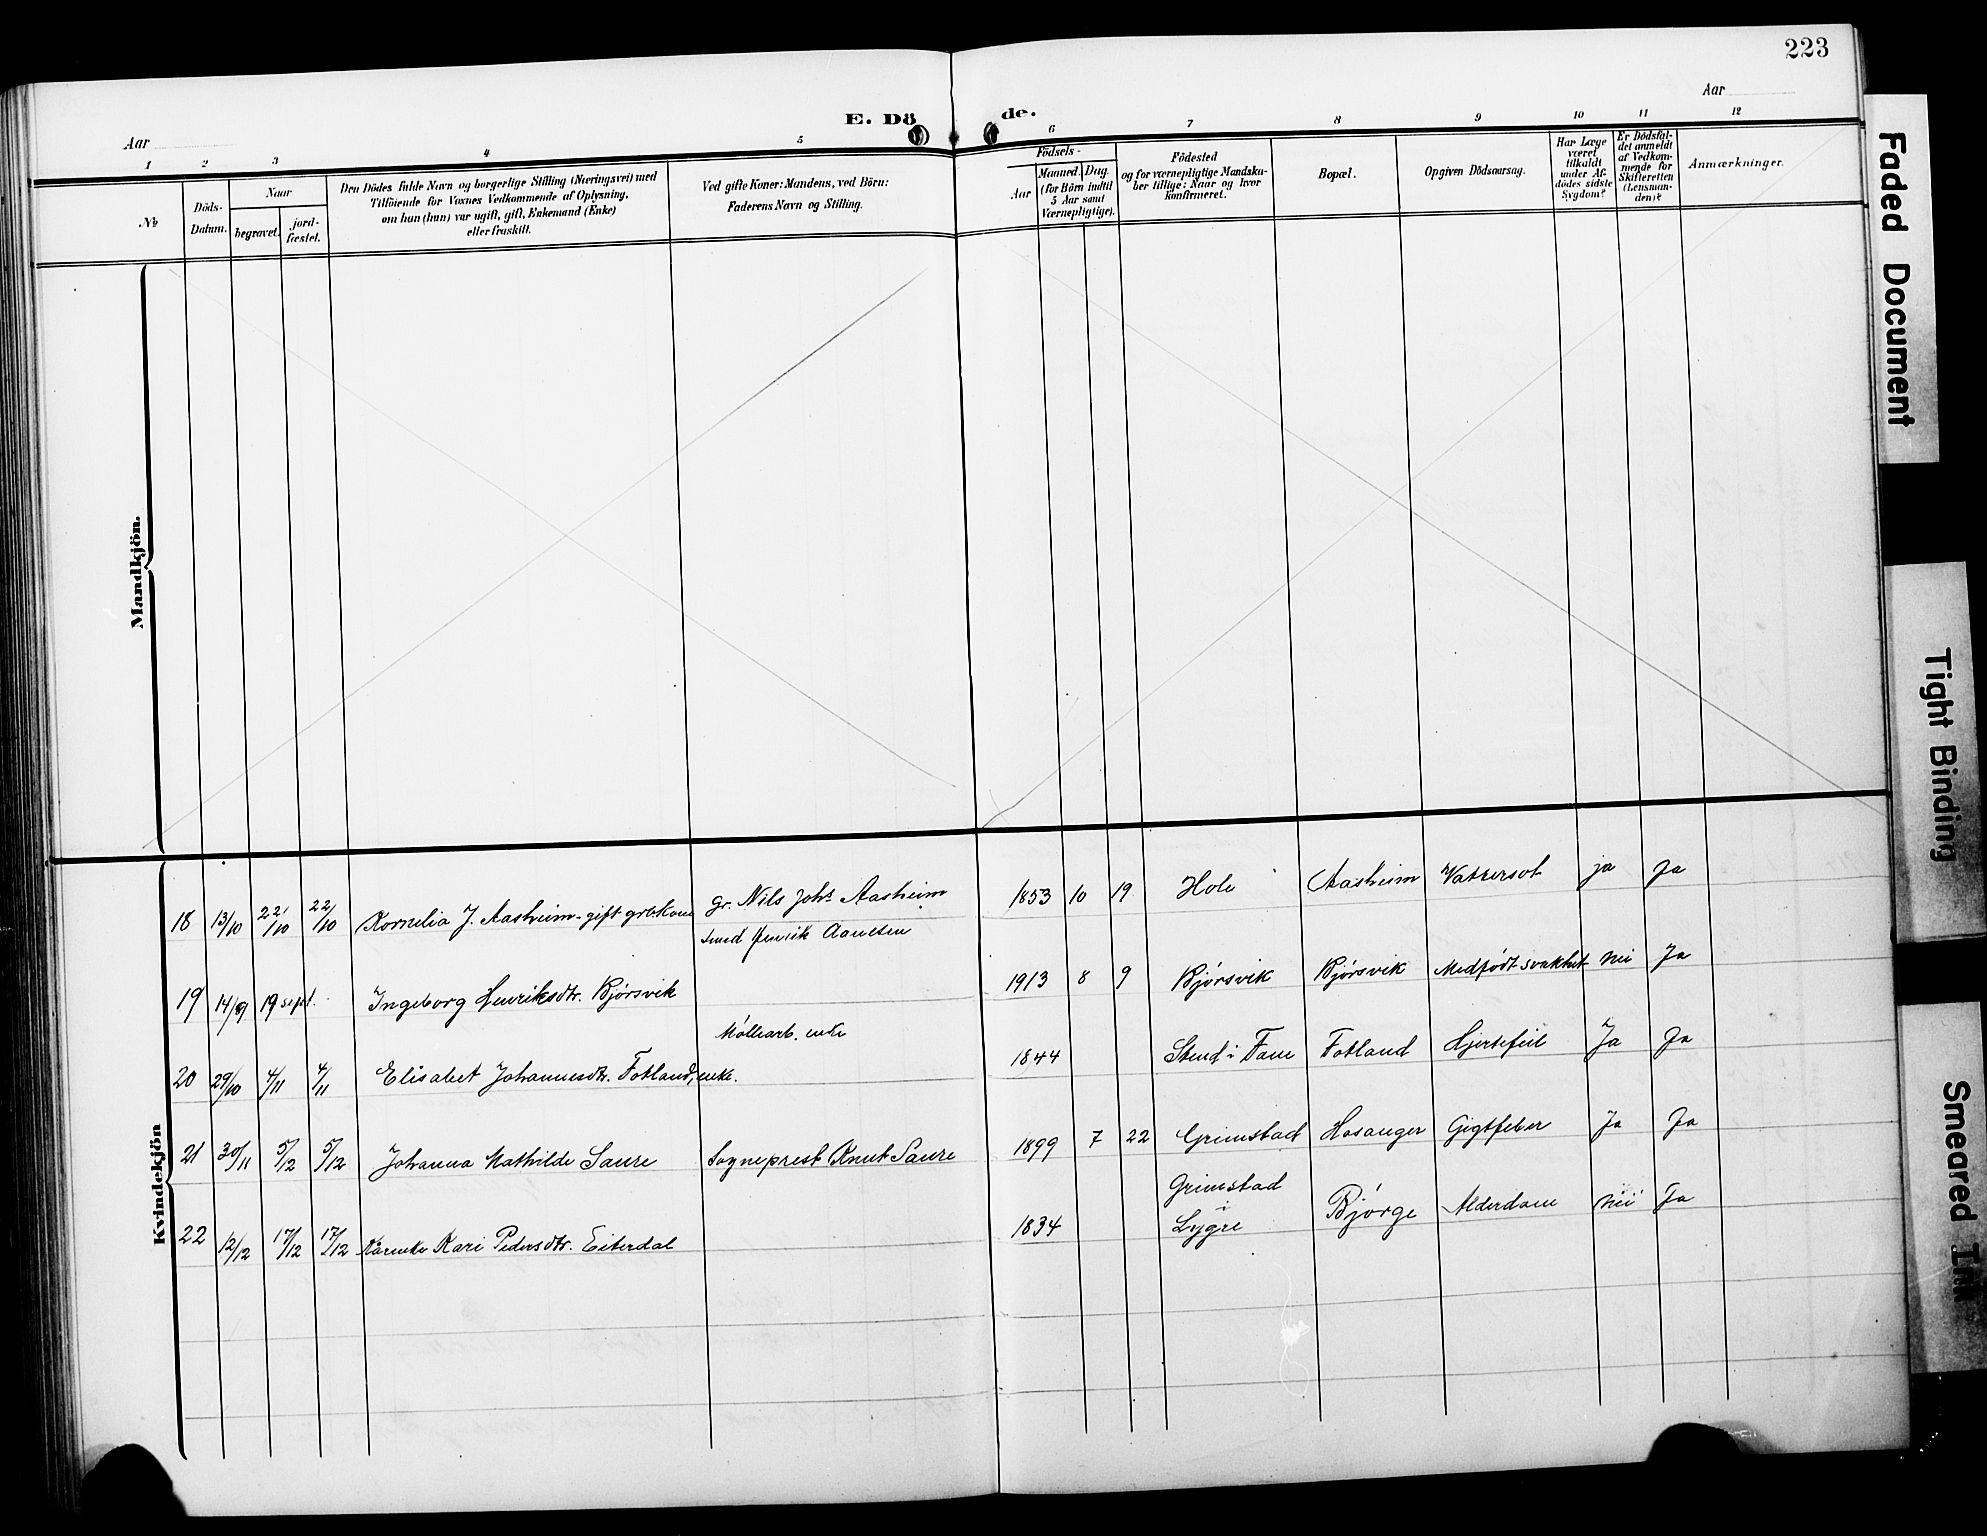 223
Aar
Aar
E. Dö de.
1 2 3 4 5 6 7 8 9 10 11 12
№
Döds-
Datum.
Naar
begravet.
jord-
fæstet.
Den Dödes fulde Navn og borgerlige Stilling (Næringsvei) med
Tilföiende for Voxnes Vedkommende af Oplysning,
om han (hun) var ugift, gift, Enkemand (Enke)
eller fraskilt.
Ved gifte Koner: Mandens, ved Börn:
Faderens Navn og Stilling.
Födsels-
Aar
Maaned. Dag.
(for Börn indtil
5 Aar samt
Værnepligtige).
Födested
og for værnepligtige Mandska-
ber tillige: Naar og hvor
konfirmeret.
Bopæl.
Opgiven Dödsaarsag.
Har Læge
været
tilkaldt
under Af-
dödes sidste
Sygdom?
Er Dödsfal-
det anmeldt
af Vedkom-
mende for
Skifteretten
(Lensman-
den)?
Anmærkninger.
Mandkjön.
Kvindekjön
18 13/10 22/10 22/10 Kornelia J. Aasheim - gift grbkone gr. Nils Johs Aasheim 1853 10 19 Hole Aasheim Vattersot ja Ja
Smed Henrik Aanesen
19 14/9 19 sept. Ingeborg Henriksdtr. Bjørsvik 1913 8 9 Bjørsvik Bjørsvik Medfødt svakhet nei Ja
Møllearb. enke
20 29/10 4/11 4/11 Elisabet Johannesdtr. Fotland, enke. 1844 Stend i Fane Fotland Hjertefeil Ja Ja
21 30/11 5/12 5/12 Johanna Mathilde Saure Sogneprest Knut Saure 1899 7 22 Grimstad Hosanger Gigtfeber Ja Ja
22 12/12 17/12 17/12 Kari Pedersdtr. Eiterdal 1834 Grimstad
i
Lygre Bjørge Alderdom nei Ja
Faded Document
Tight Binding
Smeared Ink